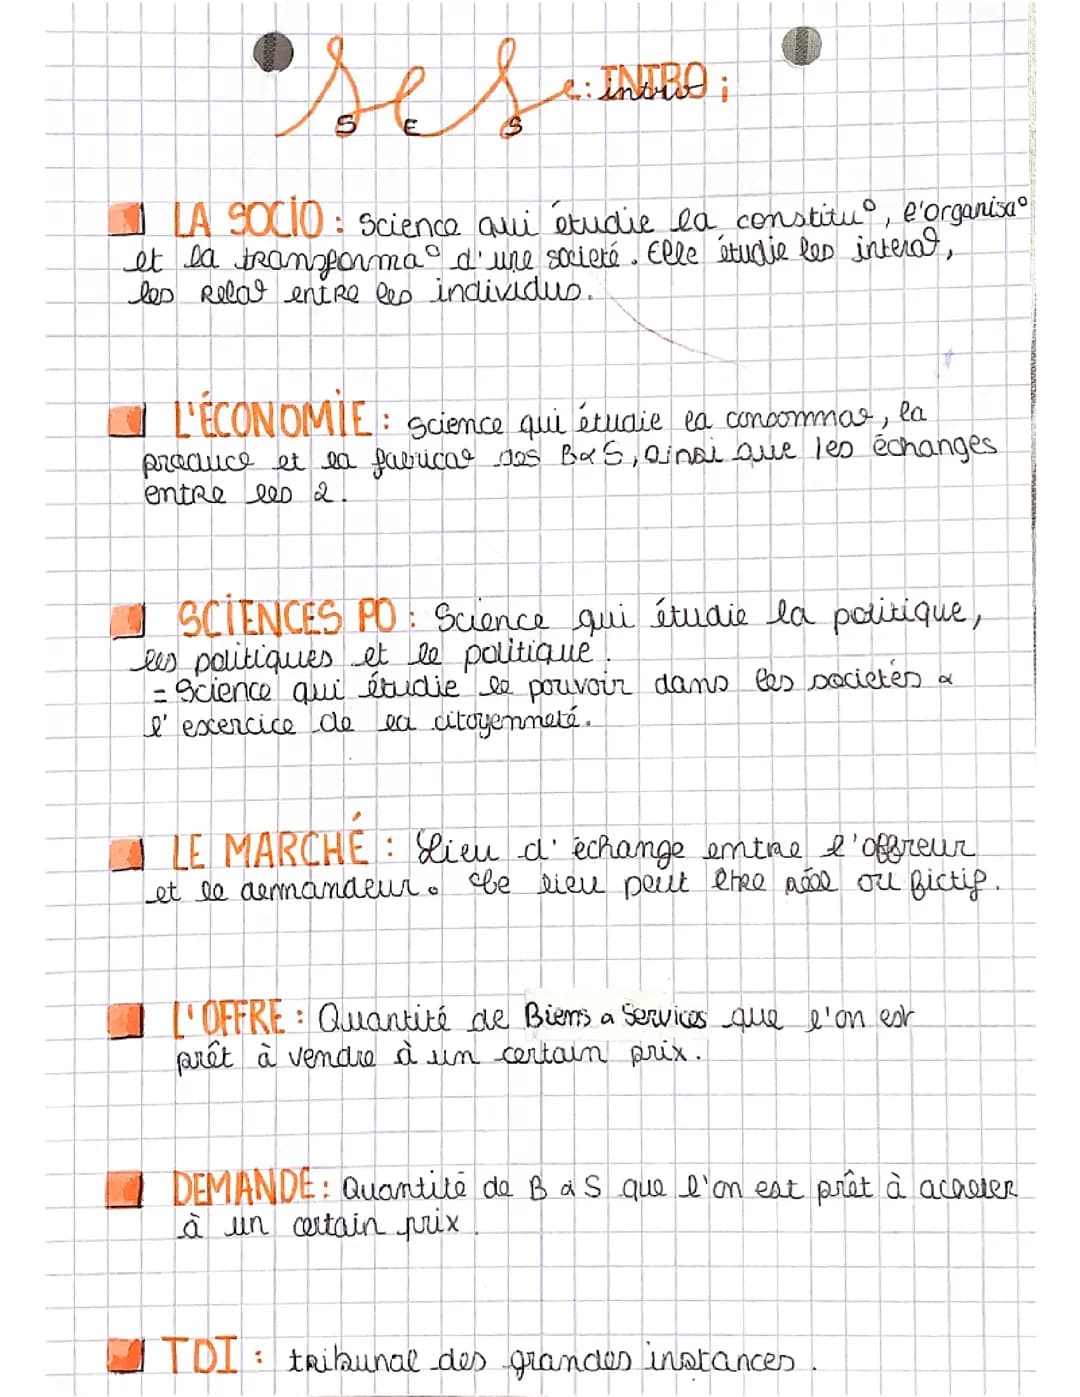 SeS e: INTRO ;
S E S
LA SOCIO : Science qui étudie la constitu°, l'organisa°
et la transforma° d'une societé. Elle étudie les interat°,
les Relat° entre les individus.
L'ÉCONOMIE : science qui étudie la consommat°, la
produce et la fabricat° des B&S, ainsi que les échanges
entre les 2.
SCIENCES PO : Science qui étudie la politique,
les politiques et le politique.
= Science qui étudie le pouvoir dans les societés &
l'excercice de la citoyenneté.
LE MARCHÉ : Lieu d'échange entre l'offreur
et le demandeur. Ce lieu peut être réel ou fictif.
L'OFFRE : Quantité de Biens & Services que l'on est
prêt à vendre à un certain prix.
DEMANDE : Quantité de B & S que l'on est prêt à acheter
à un certain prix.
TDI : tribunal des grandes instances.